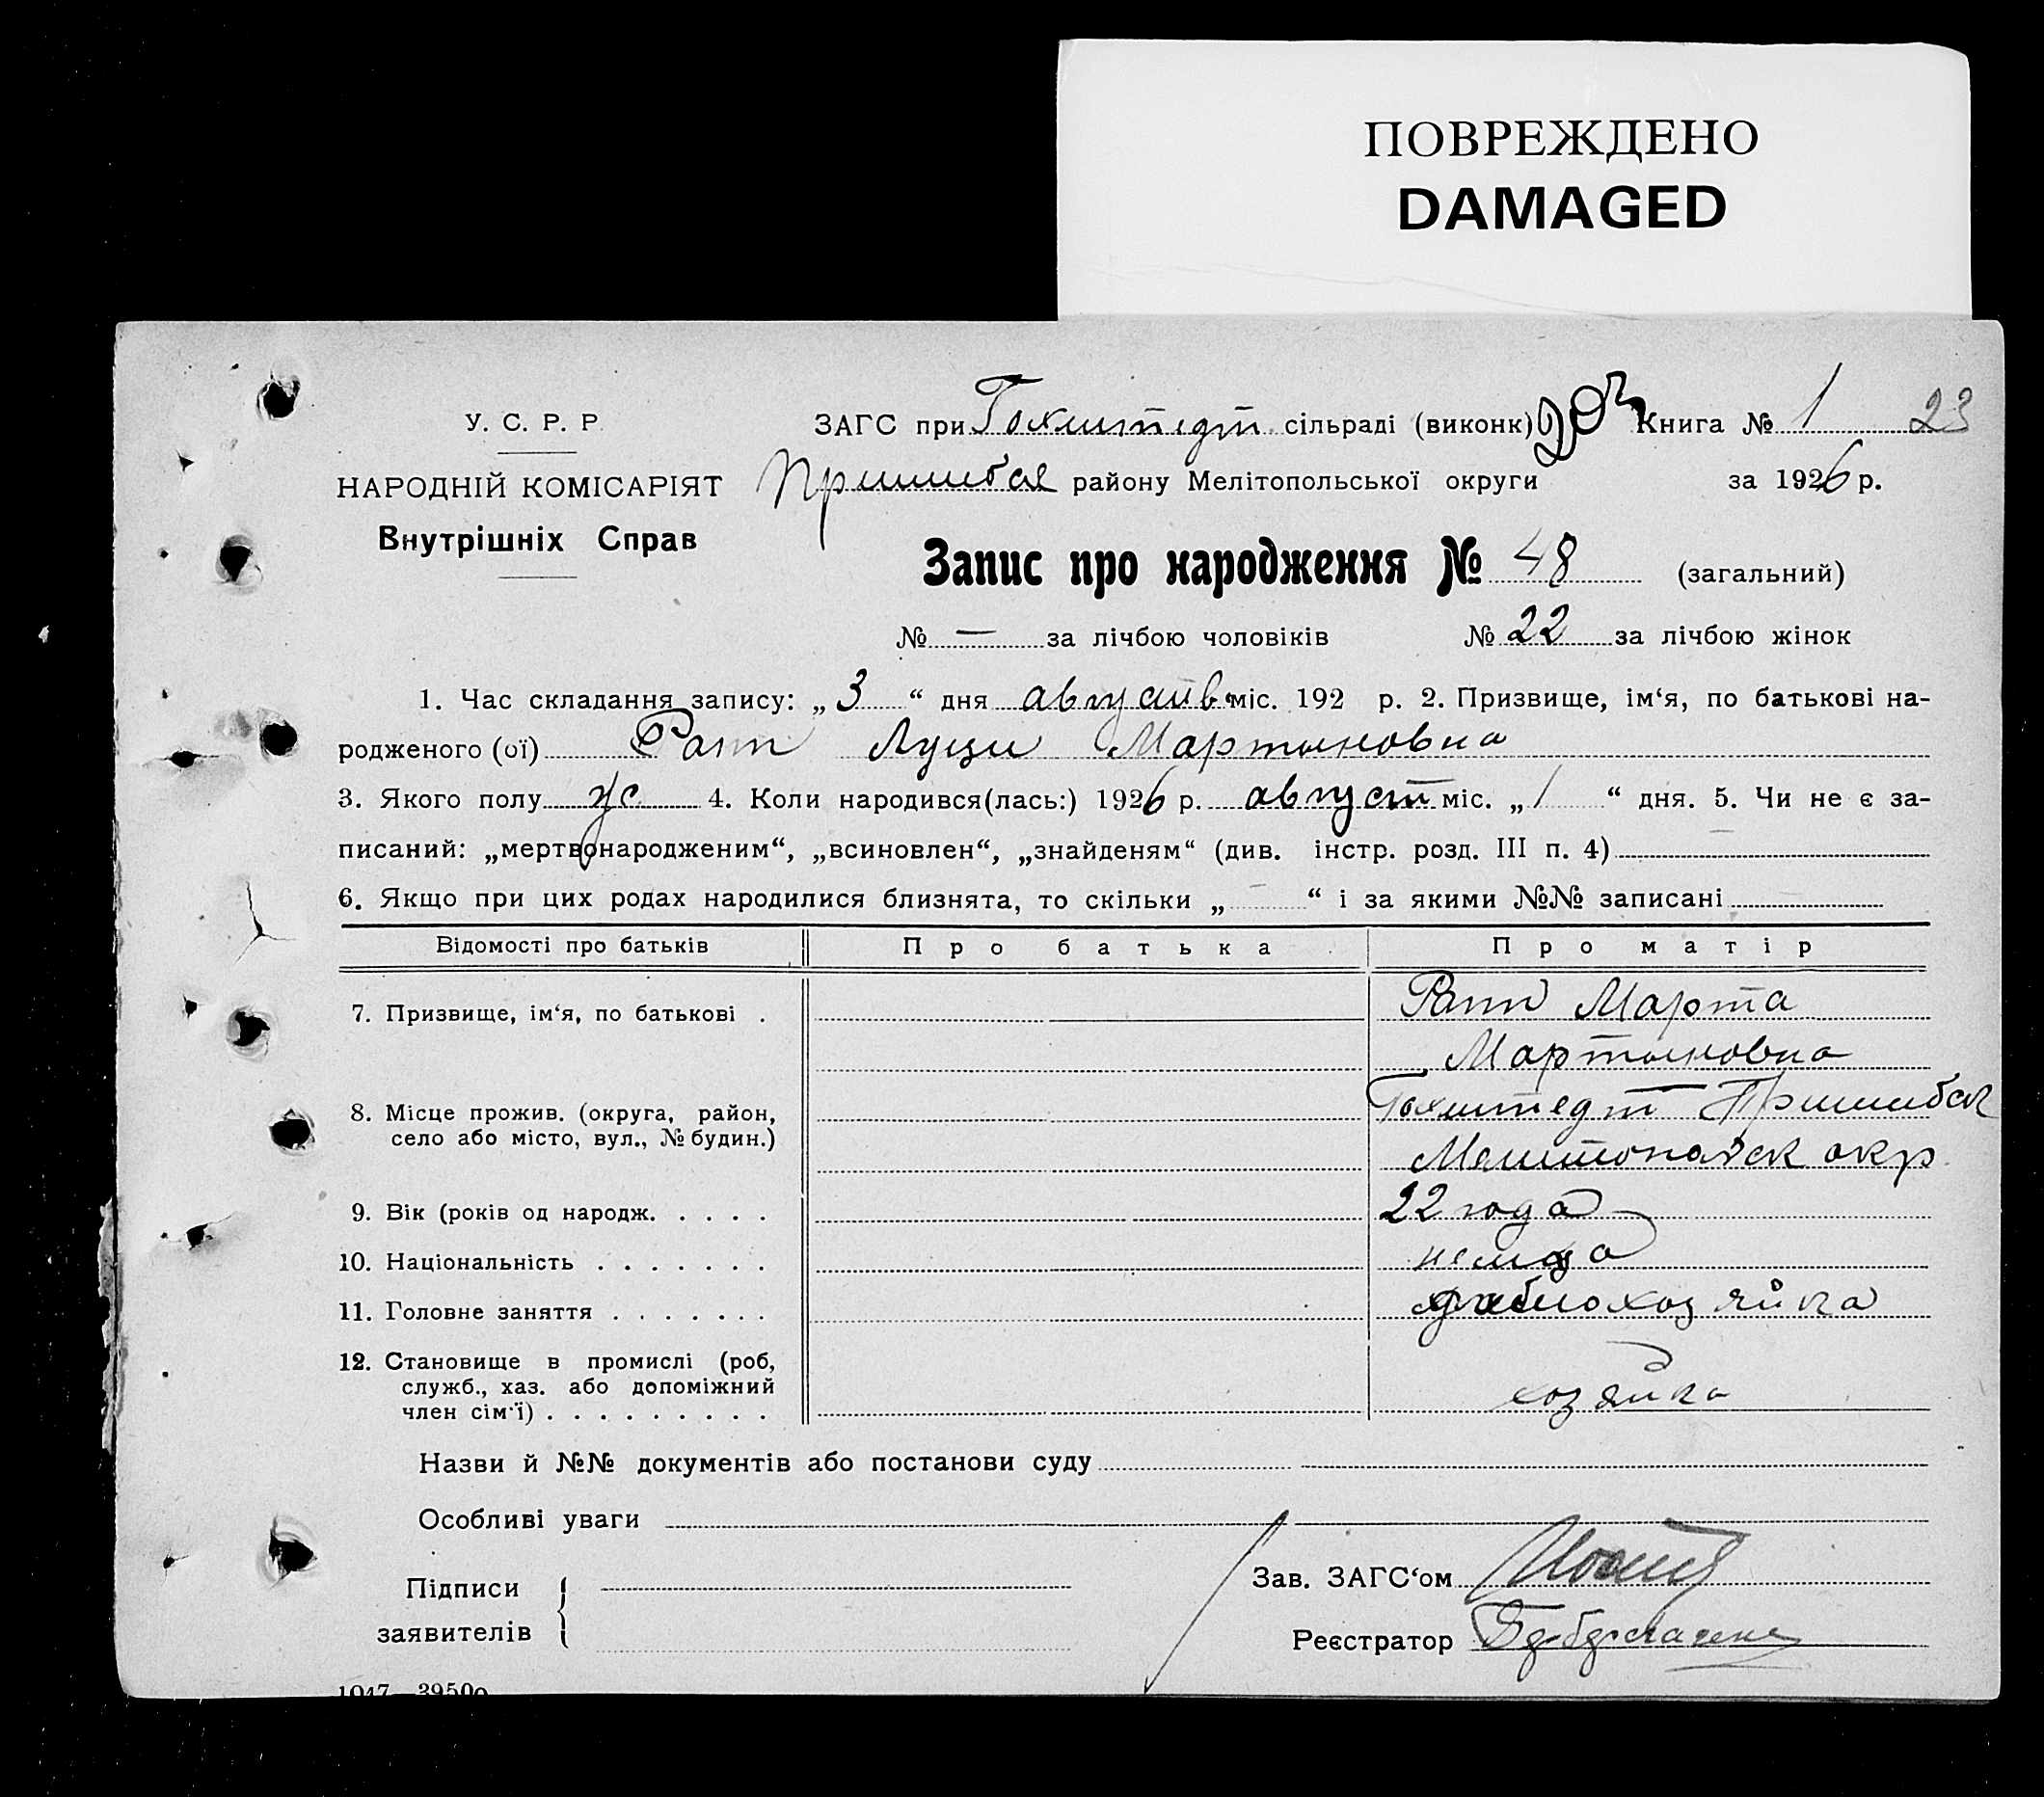 ПОВРЕЖДЕНО
DAMAGED
У. С. Р. Р.
НАРОДНІЙ КОМІСАРІЯТ
Внутрішніх Справ
ЗАГС при Гохштедт сільраді (виконк) Книга № 1 23
Пришибск району Мелітопольської округи за 1926 р.
Запис про народження № 48 (загальний)
№ — за лічбою чоловіків № 22 за лічбою жінок
1. Час складання запису: „3“ дня августа міс. 192 р. 2. Призвище, ім‘я, по батькові на-
родженого (ої) Рапп Луци Мартыновна
3. Якого полу ж 4. Коли народився(лась:) 1926 р. август міс. „1“ дня. 5. Чи не є за-
писаний: „мертвонародженим“, „всиновлен“, „знайденям“ (див. інстр. розд. III п. 4) —
6. Якщо при цих родах народилися близнята, то скільки „—“ і за якими №№ записані —
Відомості про батьків Про батька Про матір
7. Призвище, ім‘я, по батькові . Рапп Марта
Мартыновна
8. Місце прожив. (округа, район, Гохштедт Пришибск
село або місто, вул., № будин.) Мелитопольск окр
9. Вік (років од народж. . . . . 22 года
10. Національність . . . . . . . немка
11. Головне заняття . . . . . . .
12. Становище в промислі (роб,
служб., хаз. або допоміжний
член сім‘ї) . . . . . . . . . хозяйка
Назви й №№ документів або постанови суду
Особливі уваги
Підписи
заявителів
Зав. ЗАГС‘ом
Реєстратор
1047 3950